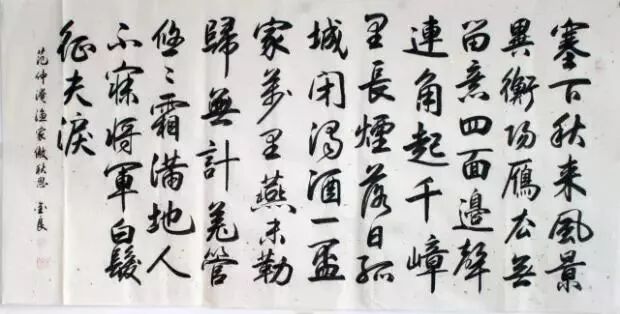 塞下秋来風景
異衡陽鴈去無
留意四面邊聲
連角起千嶂
里長煙落日孤
城閉濁酒一盃
家萬里燕未勒
歸無計羌管
悠々霜滿地人
不寐將軍白髮
征夫淚
范仲淹漁家傲秋思